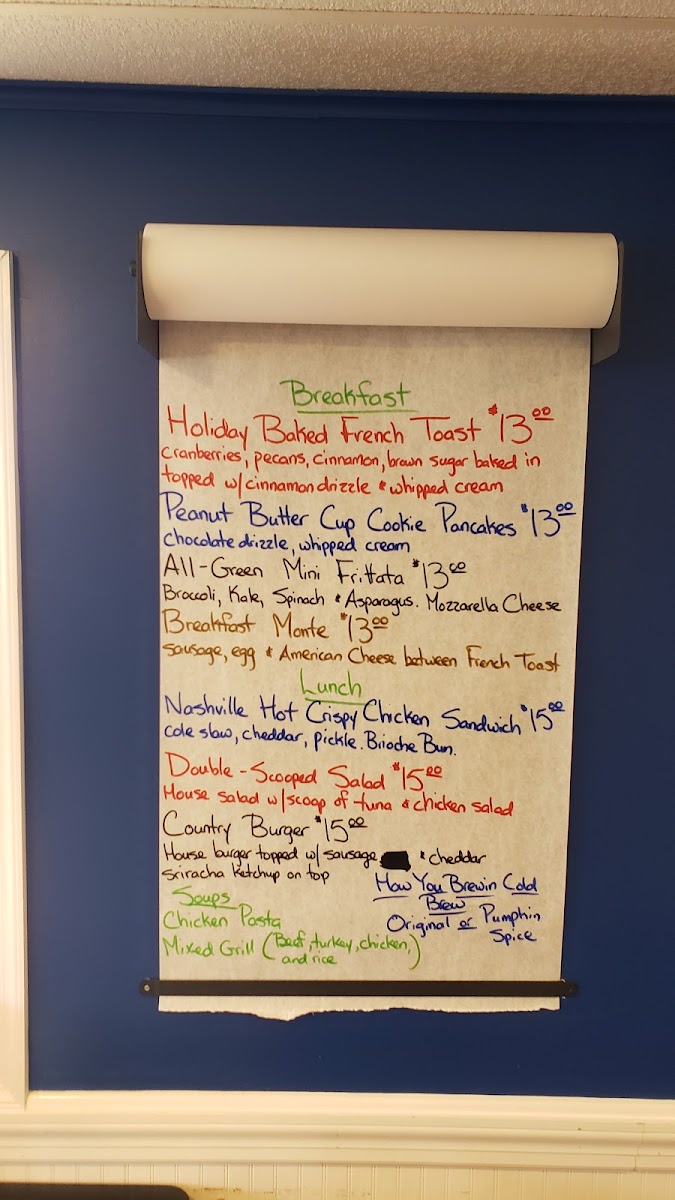 Breakfast
Holiday Baked French Toast $13.00
cranberries, pecans, cinnamon, brown sugar baked in
topped w/cinnamon drizzle & whipped cream
Peanut Butter Cup Cookie Pancakes $13.00
chocolate drizzle, whipped cream
All-Green Mini Frittata $13.00
Broccoli, Kale, Spinach & Asparagus. Mozzarella Cheese
Breakfast Monte $13.00
sausage, egg & American Cheese between French Toast
Lunch
Nashville Hot Crispy Chicken Sandwich $15.00
cole slaw, cheddar, pickle. Brioche Bun.
Double-Scooped Salad $15.00
House salad w/scoop of tuna & chicken salad
Country Burger $15.00
House burger topped w/ sausage & cheddar
sriracha ketchup on top
Soups
Chicken Pasta
Mixed Grill (Beef, turkey, chicken,
and rice)
How You Brewin Cold
Brew
Original or Pumpkin
Spice